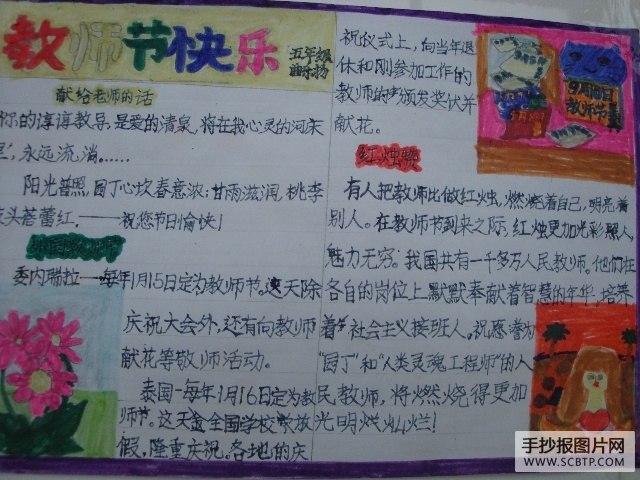 教师节快乐
五年级
献给老师的话
你的谆谆教导,是爱的清泉,将在我心灵的河床
里,永远流淌……
阳光普照,园丁心坎春意浓;甘雨滋润,桃李
枝头蓓蕾红,——祝您节日愉快!
委内瑞拉—每年1月15日定为教师节。这天除
庆祝大会外,还有向教师
献花等敬师活动。
泰国-每年1月16日定为教
师节。这天全国学校放
假,隆重庆祝。各地的庆
祝仪式上,向当年退
休和刚参加工作的
教师的颁发奖状并
献花。
红烛赞
有人把教师比做红烛,燃烧着自己,明亮着
别人。在教师节到来之际,红烛更加光彩照人,
魅力无穷。我国共有一千多万人民教师。他们在
各自的岗位上默默奉献着智慧的年华,培养
着社会主义接班人。祝愿誉为
“园丁”和“人类灵魂工程师”的人
民教师,将燃烧得更加
光明灿烂!
9月10日
教师节
手抄报图片网
WWW.SCBTP.COM